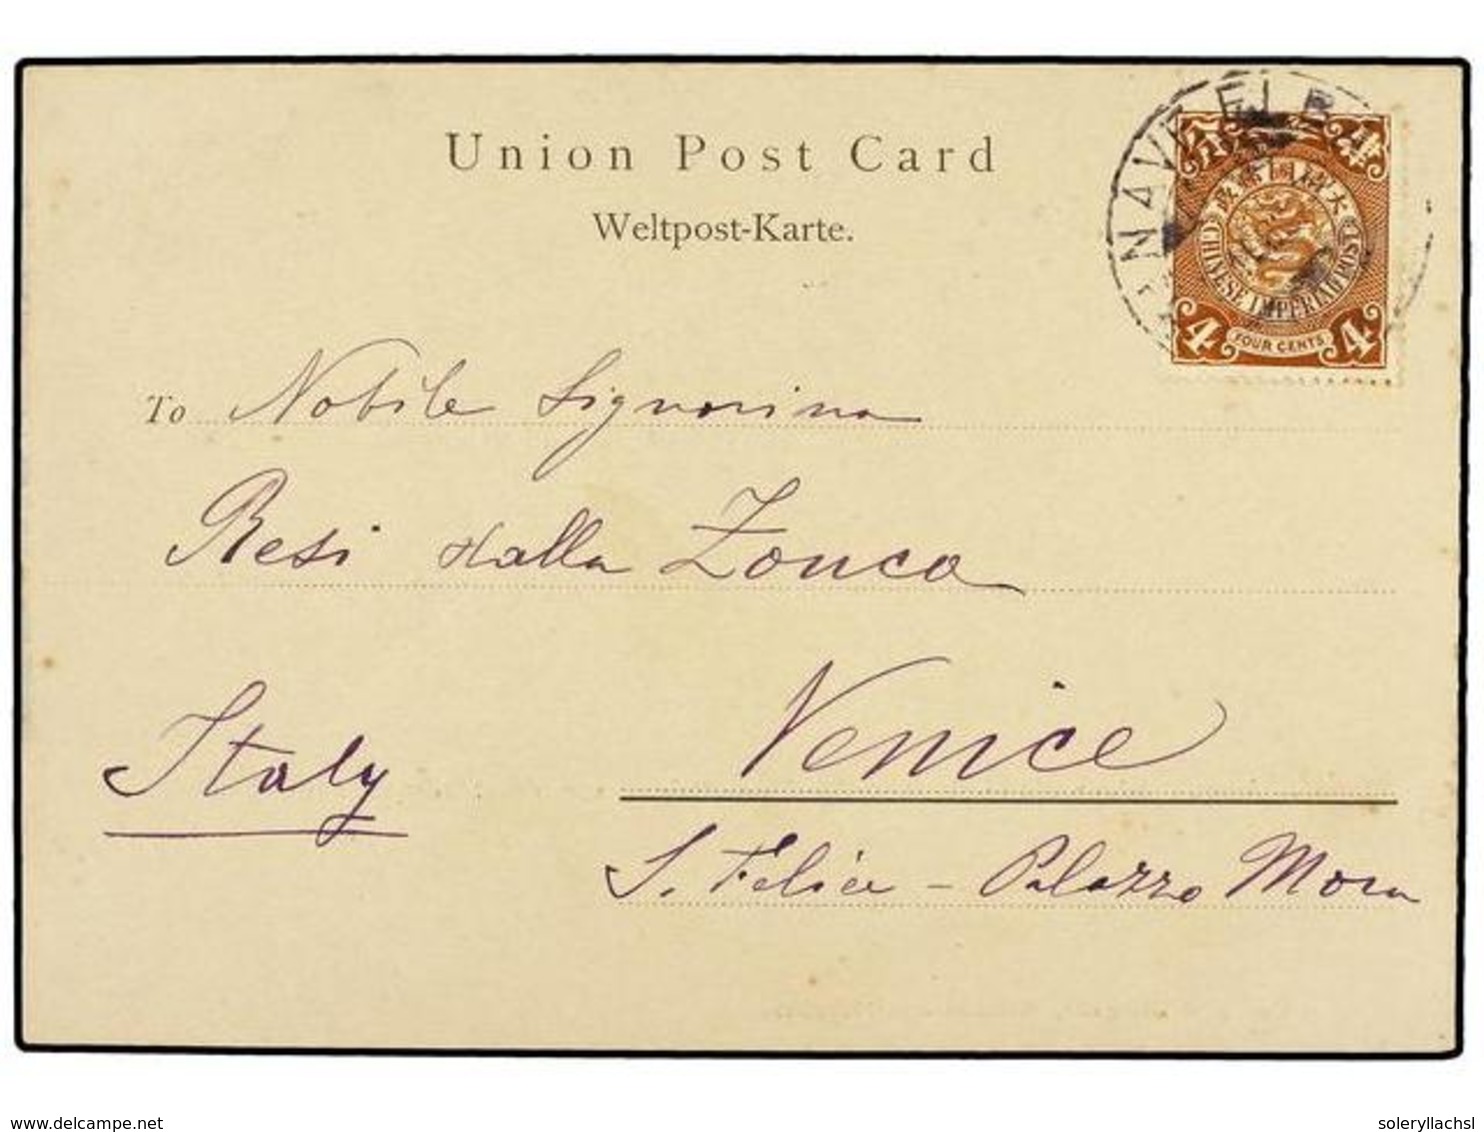 Union Post Card
Weltpost-Karte.
大清國郵政
CHINESE IMPERIAL POST
4 4
FOUR CENTS
To Nobile Signorina
Resi dalla Zonca
Venice
Italy
S. Felice - Palazzo Mora
delcampe.net
soleryllachsl